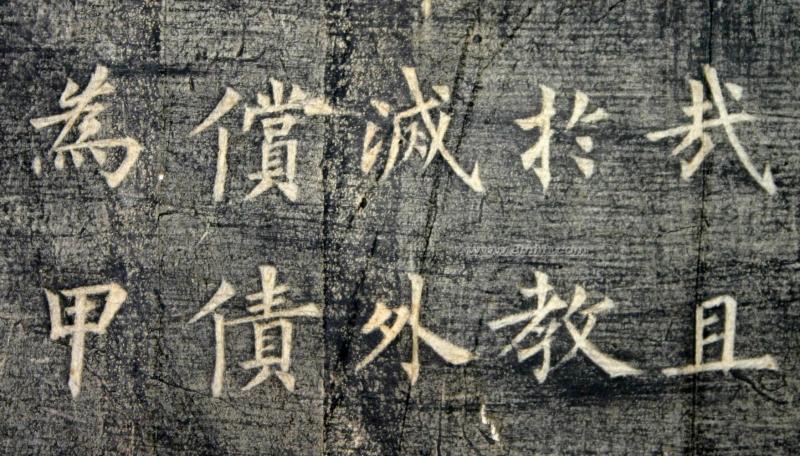 哉且
於教
滅外
償債
為甲